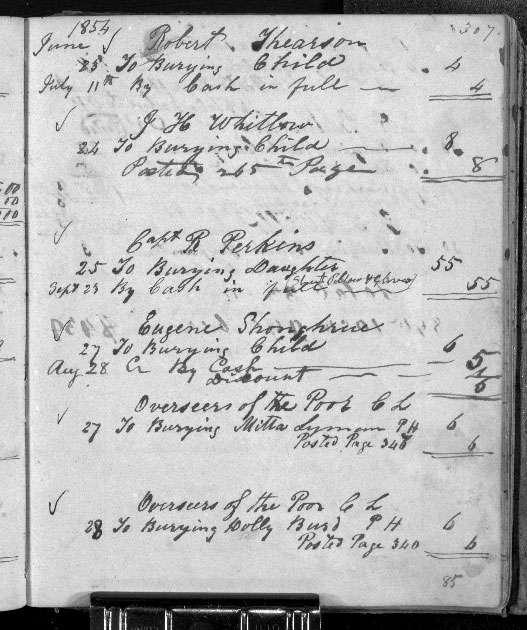 1854 307
June Robert Thearson
25 To Burying Child 4
July 11th By Cash in full 4
J H Whitlow
24 To Burying Child 8
Posted 265th Page 8
Capt R Perkins
25 To Burying Daughter 55
Sept 23 By Cash in full 55
Eugene Shonghrue
27 To Burying Child 6
Aug 28 Cr By Cash 5
Discount
6
Overseers of the Poor C L
27 To Burying Mitta Lyman P H 6
Posted Page 340 6
Overseers of the Poor C L
28 To Burying Dolly Burd P H 6
Posted Page 340 6
85